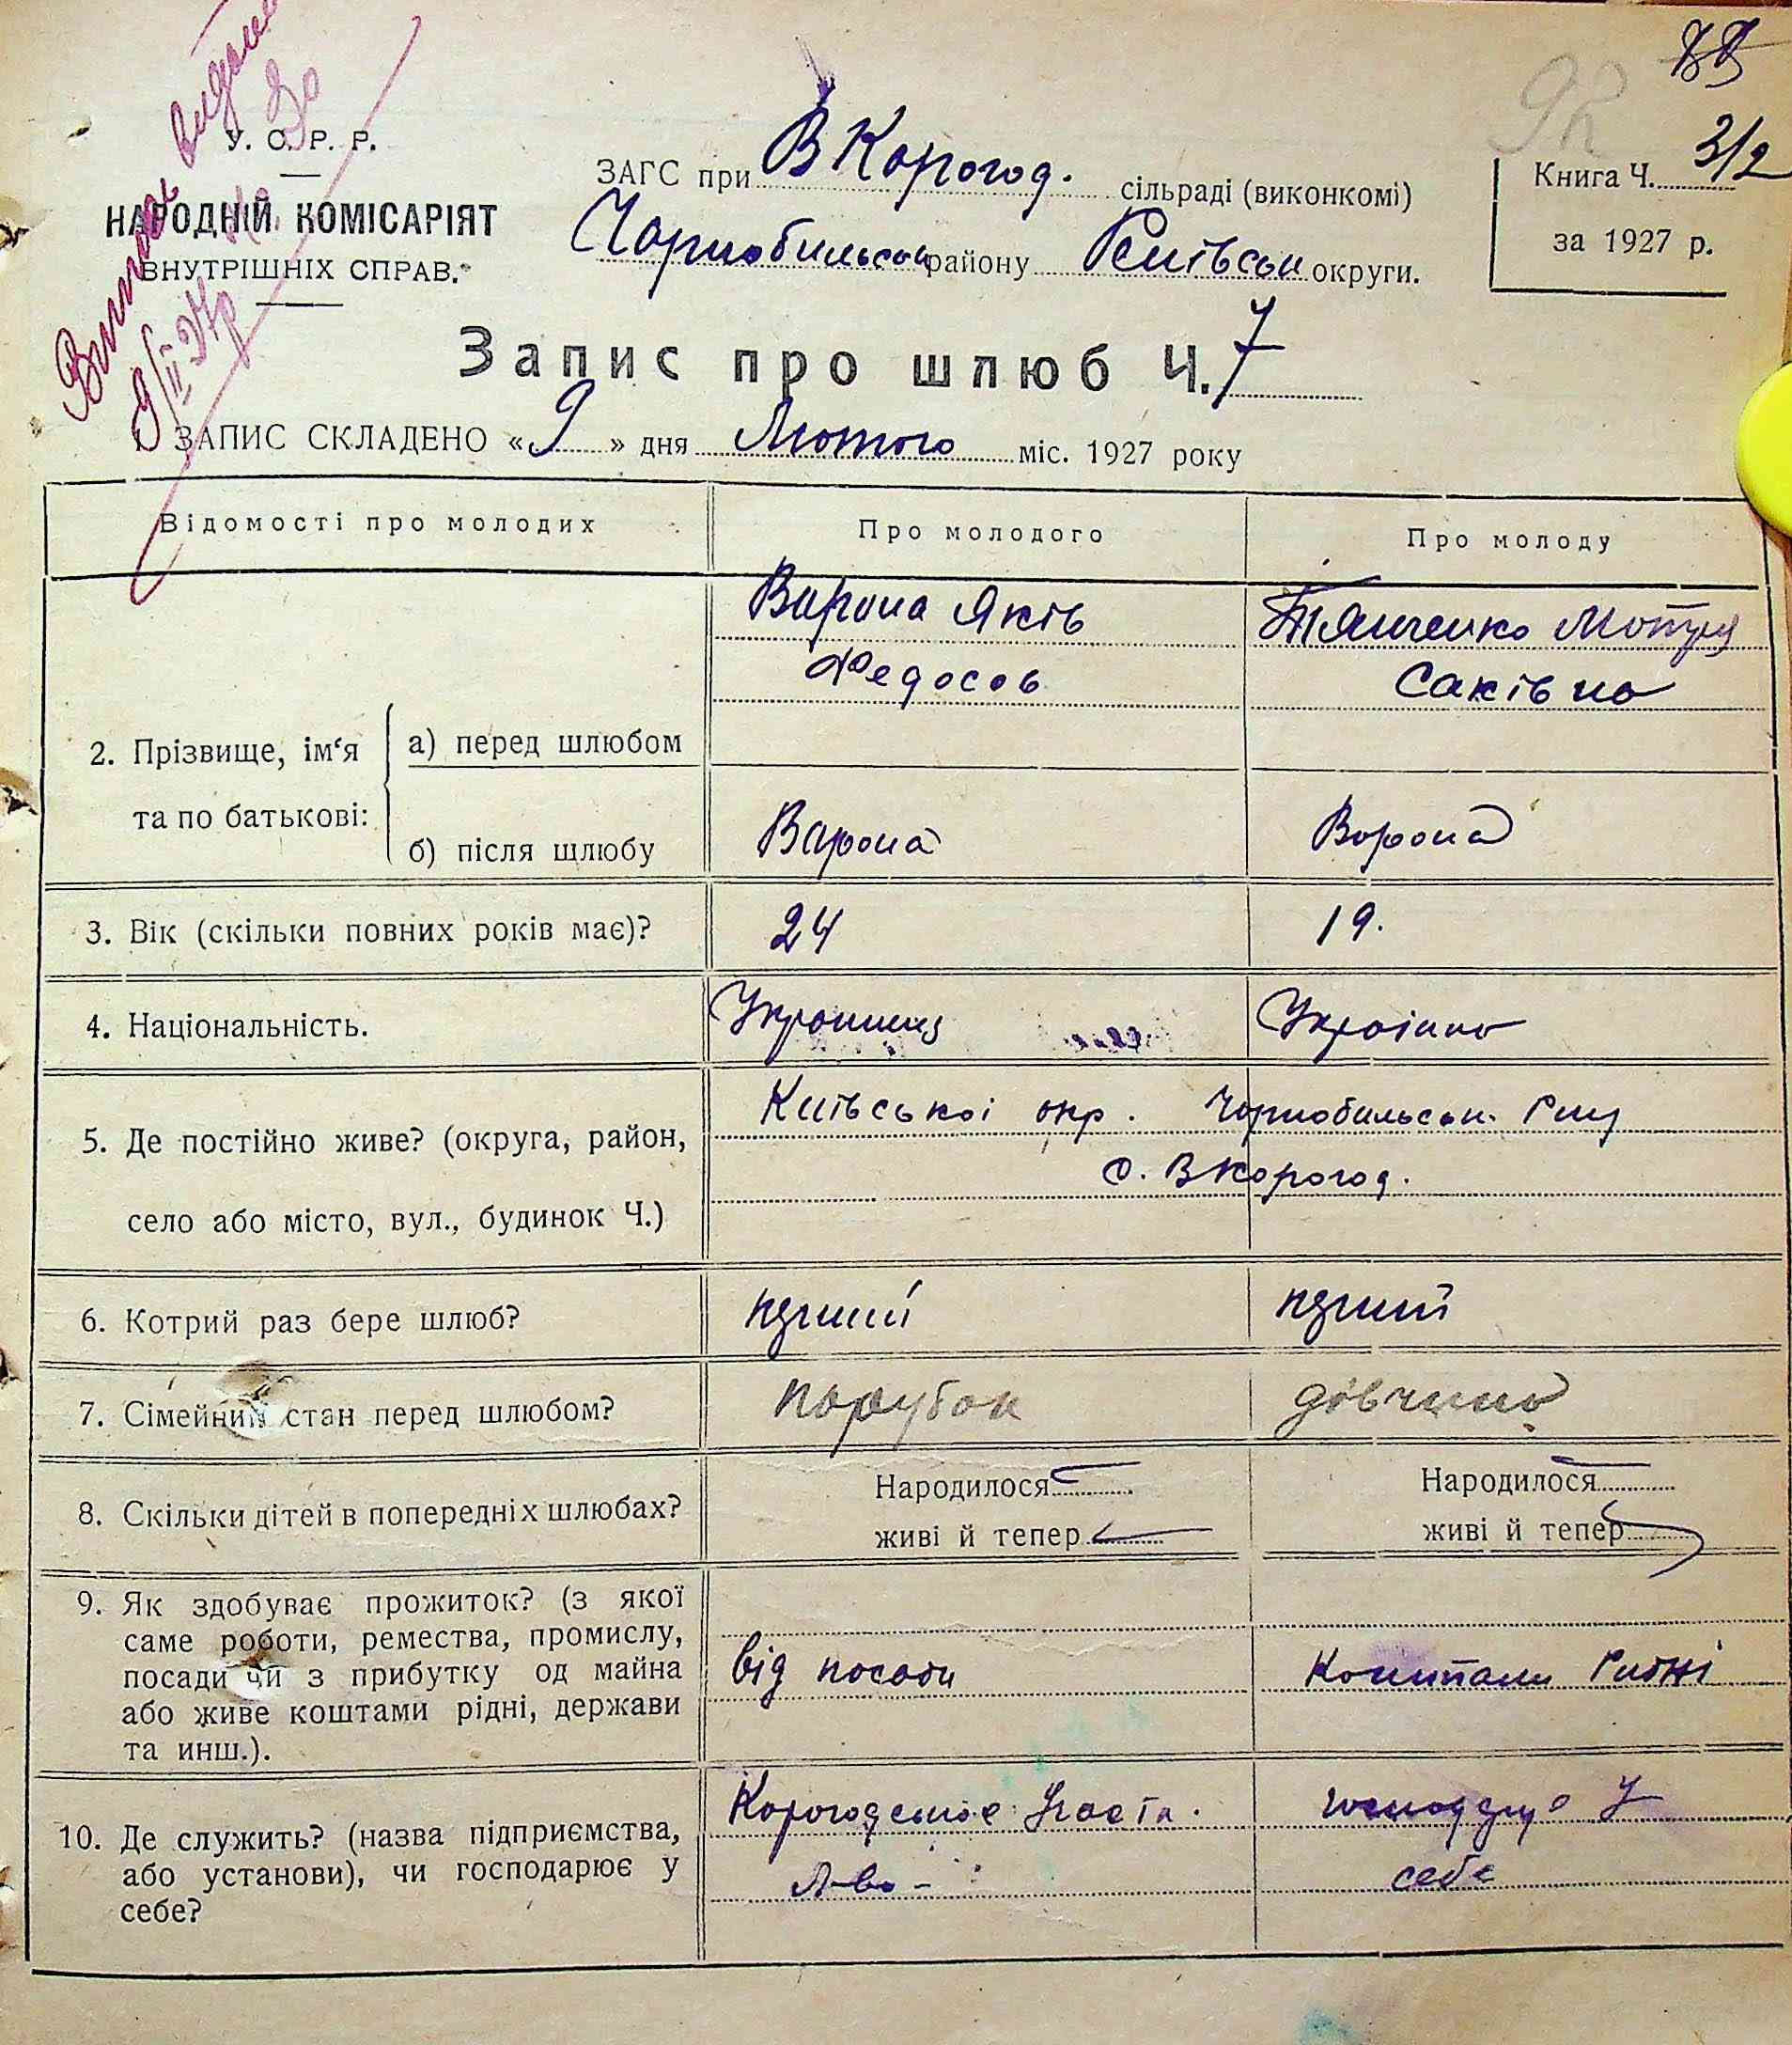 У. С. Р. Р.
НАРОДНІЙ КОМІСАРІЯТ
ВНУТРІШНІХ СПРАВ.
ЗАГС при В Корогод. сільраді (виконкомі)
Чорнобильськ району Київськ округи.
Книга Ч. 3/2
за 1927 р.
Запис про шлюб Ч. 7
ЗАПИС СКЛАДЕНО «9» дня Лютого міс. 1927 року
Відомості про молодих
Про молодого
Про молоду
2. Прізвище, ім'я та по батькові:
а) перед шлюбом
Варона Яків
Федосов
Мотря
Саківна
б) після щлюбу
Варона
Ворона
3. Вік (скільки повних років має)?
24
19.
4. Національність.
Українець
Україінка
5. Де постійно живе? (округа, район,
село або місто, вул., будинок Ч.)
Київської окр. Чорнобильськ.
с. В Корогод.
6. Котрий раз бере шлюб?
перший
перший
7. Сімейний стан перед шлюбом?
парубок
дівчина
8. Скільки дітей в попередніх шлюбах?
Народилося —
живі й тепер —
Народилося —
живі й тепер —
9. Як здобуває прожиток? (з якої
саме роботи, ремества, промислу,
посади чи з прибутку од майна
або живе коштами рідні, держави
та инш.).
від посади
Коштами Ридні
10. Де служить? (назва підприємства,
або установи), чи господарює у
себе?
Корогодське
Л-во -
у
себе